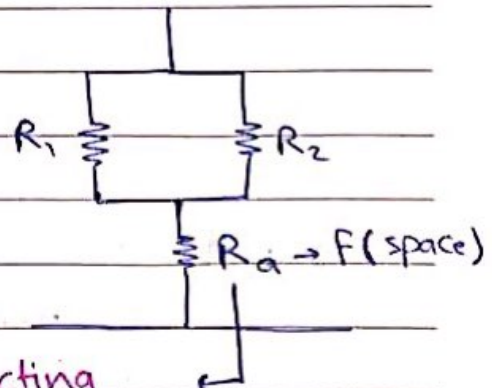 R₁ R₂
Rₐ → F(space)
rting